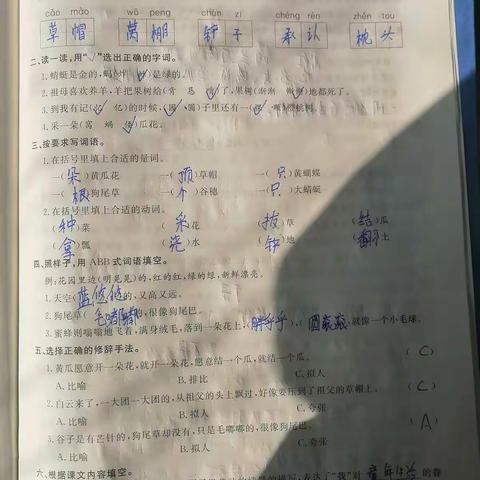 cǎo mào wō peng chǎn zi chéng rèn zhěn tou
草帽 莴棚 铲子 承认 枕头
二、读一读,用“√”选出正确的字词。
1.蜻蜓是金的,蚂 是绿的。
2.祖母喜欢养羊,羊把果树给( )了,果树( )地都死了。
3.到我有记( 亿)的时候, 子里还有一 樱桃树。
4.采一朵(窝 蜗 倭)瓜花。
三、按要求写词语。
1.在括号里填上合适的量词。
一(朵)黄瓜花 一(顶)草帽 一(只)黄蝴蝶
一(根)狗尾草 一(个)谷穗 一(只)大蜻蜓
2.在括号里填上合适的动词。
(种)菜 (采)花 (拔)草 (结)瓜
(拿)瓢 (浇)水 (铲)地 (翻)土
四、照样子,用 ABB 式词语填空。
例:花园里边(明晃晃)的,红的红,绿的绿,新鲜漂亮。
1.天空(蓝悠悠)的,又高又远。
2.狗尾草(毛嘟嘟),很像狗尾巴。
3.蜜蜂则嗡嗡地飞着,满身绒毛,落到一朵花上,(胖乎乎),(圆滚滚),就像一个小毛球。
五、选择正确的修辞手法。
1.黄瓜愿意开一朵花,就开一朵花,愿意结一个瓜,就结一个瓜。 (C)
A.比喻 B.排比 C.拟人
2.白云来了,一大团一大团的,从祖父的头上飘过,好像要压到了祖父的草帽上。 (C)
A.比喻 B.拟人 C.夸张
3.谷子是有芒针的,狗尾草却没有,只是毛嘟嘟的,很像狗尾巴。 (A)
A.比喻 B.拟人 C.夸张
六、根据课文内容填空。
的描写,表达了“我”对 童年生活 的眷